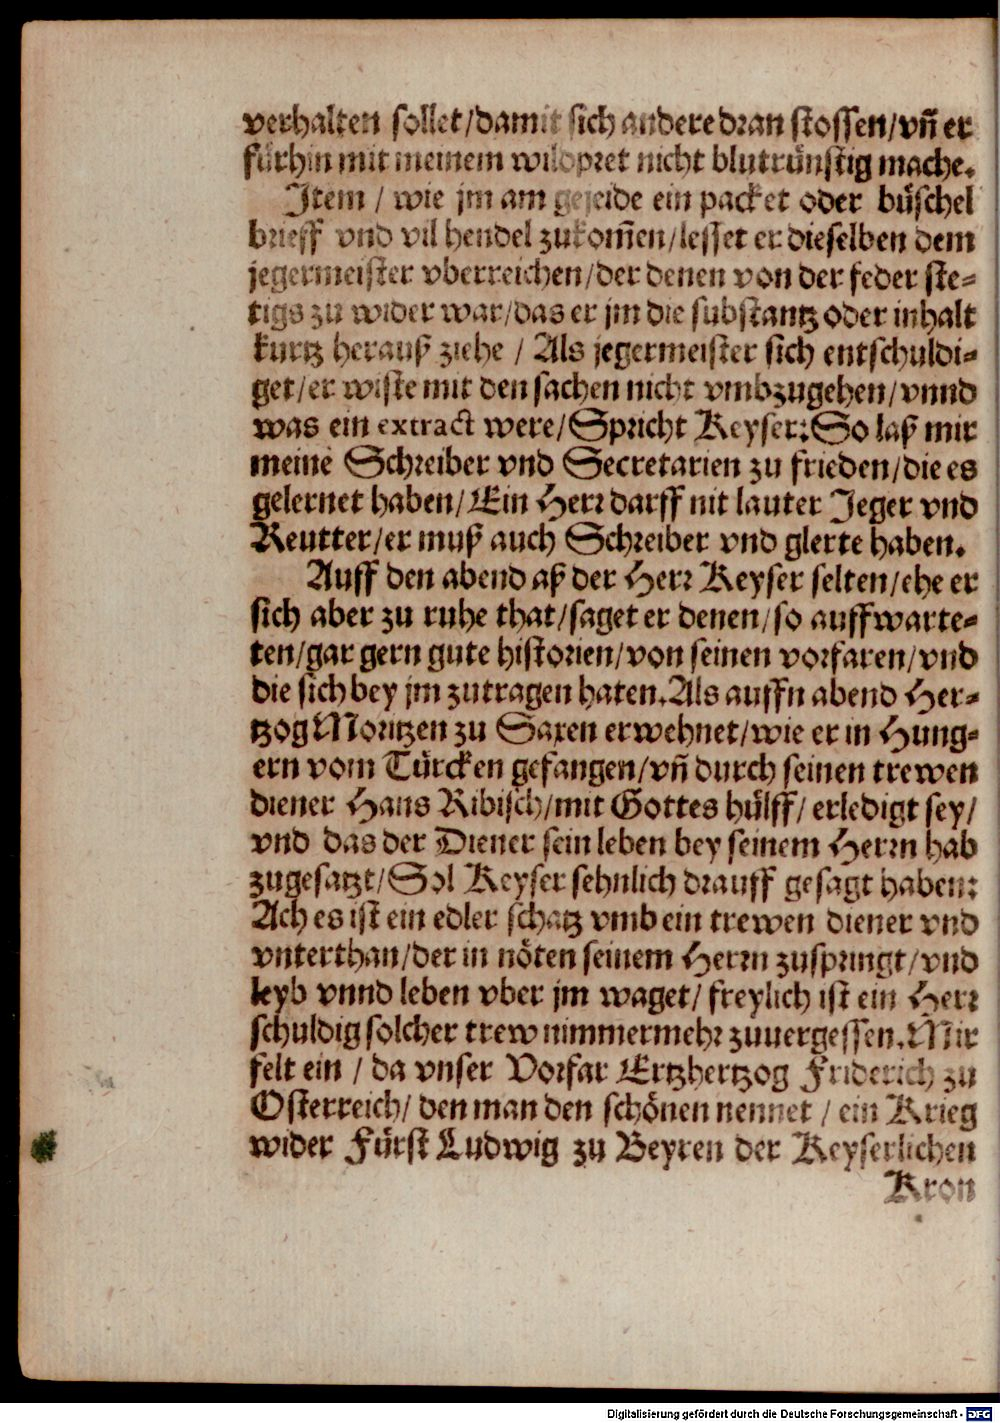 verhalten sollet/damit sich andere dran stossen/vñ er
fürhin mit meinem wildpret nicht blutrünstig mache.
Item / wie jm am gejeide ein packet oder büschel
brieff vnd vil hendel zukom̃en/lesset er dieselben dem
jegermeister vberreichen/der denen von der feder ste-
tigs zu wider war/das er jm die substantz oder inhalt
kurtz herauß ziehe / Als jegermeister sich entschuldi-
get/er wiste mit den sachen nicht vmbzugehen/vnnd
was ein extract were/Spricht Keyser: So laß mir
meine Schreiber vnd Secretarien zu frieden/die es
gelernet haben/Ein Herr darff nit lauter Jeger vnd
Reutter/er muß auch Schreiber vnd glerte haben.
Auff den abend aß der Herr Keyser selten/ehe er
sich aber zu ruhe that/saget er denen/so auffwarte-
ten/gar gern gute historien/von seinen vorfaren/vnd
die sich bey jm zutragen haten. Als auffn abend Her-
tzog Moritzen zu Saxen erwehnet/wie er in Hung-
ern vom Türcken gefangen/vñ durch seinen trewen
diener Hans Ribisch/mit Gottes hülff/ erledigt sey/
vnd das der Diener sein leben bey seinem Herrn hab
zugesatzt/Sol Keyser sehnlich drauff gesagt haben:
Ach es ist ein edler schatz vmb ein trewen diener vnd
vnterthan/der in nöten seinem Herrn zuspringt/vnd
leyb vnnd leben vber jm waget/ freylich ist ein Herr
schuldig solcher trew nimmermehr zuuergessen. Mir
felt ein / da vnser Vorfar Ertzhertzog Friderich zu
Osterreich/ den man den schönen nennet / ein Krieg
wider Fürst Ludwig zu Beyren der Keyserlichen
Kron
Digitalisierung gefördert durch die Deutsche Forschungsgemeinschaft - DFG